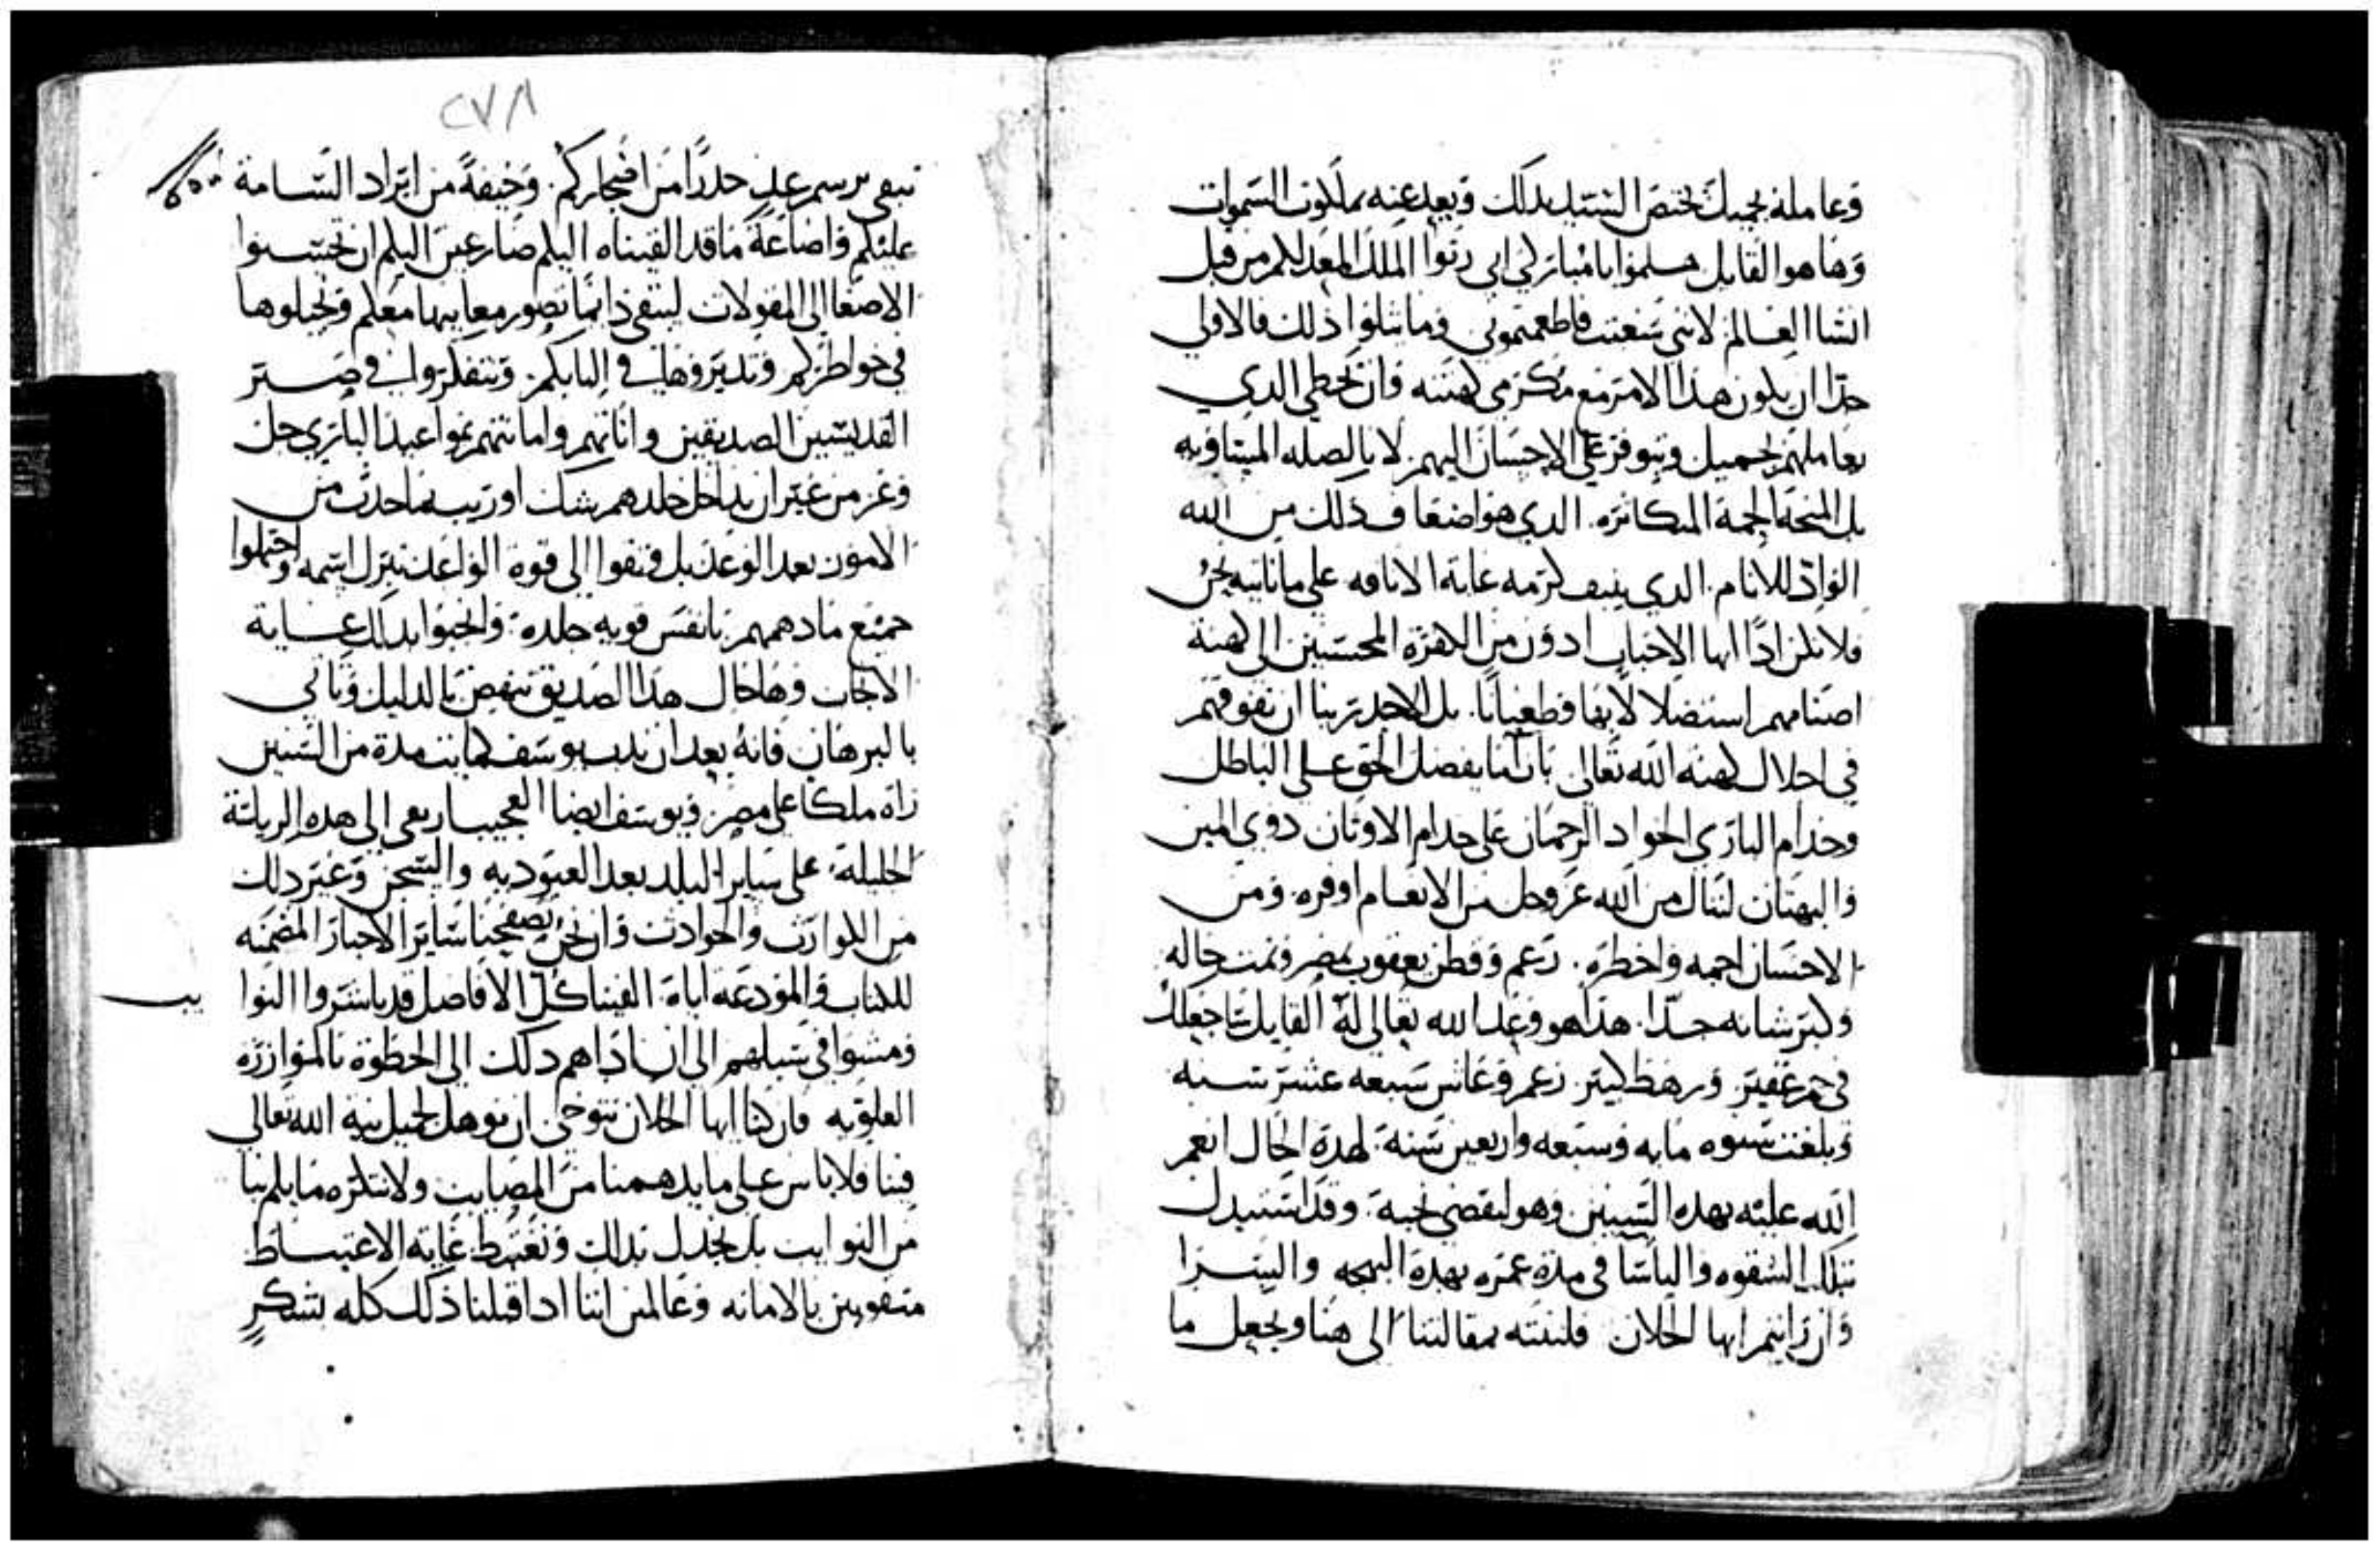 وعاملة بجميل تختص السيد بذلك ويعد عنه بملكوت السموات
وها هو القايل هلموا يا مباركي ابي رثوا الملك المعد لكم من قبل
انشا العالم لانني سغبت فاطعمتموني وما يتلوا ذلك فالاولى
جدا ان يكون هذا الامر مع مكرمي كهنته وان نحظي الدي
يعاملهم بجميل ويتوفر على الاحسان اليهم لا بالصله المتساويه
بل المنحة الجمة المتكاثره الدي هو اضعاف ذلك من الله
الواد للانام الدي ينيف كرمه غاية الانافه على ما ناتيه نحن
فلا نكن ادًا ايها الاحباب ادون من الكفرة المحسنين الى كهنة
اصنامهم استضلالا بها وطغيانًا بل الاجدر بنا ان نفوقهم
في اجلال كهنه الله تعالى باننا نفضل الحق على الباطل
وخدام الباري الجواد الرحمان على خدام الاوتان دوي المين
والبهتان لننال من الله عز وجل من الانعام اوفره ومن
الاحسان اجمه واخطره زعم وقطن يعقوب بمصر ونمت حاله
وكبر شانه جدًا هذا هو وعد الله تعالى له القايل ساجعلك
في جم غفير ورهط كبير زعم وعاش سبعه عشر سنه
وبلغت سنوه مايه وسبعه واربعين سنة لهدة الحال انعم
الله عليه بهده السنين وهو ليقضي نحبة وقد استبدل
بتلك الشقوه والباسا في مدة عمره بهدة البهجه واليسرا
وان رايتم ايها الخلان فلننته بمقالتنا الى هنا ونجعل ما
٢٧٨
نبقي برسم غد حدرًا من اضجاركم وخيفةً من ايراد السامة
عليكم واضاعة ما قد القيناه اليكم ضارعين اليكم ان تحسنوا
الاصغا الى المقولات لينتفى دايمًا تصور معانيها معكم وتجيلوها
في خواطركم وتدبروها في البابكم وتتفكروا في صبر
القديسين الصديقين واناتهم وامانتهم بمواعيد الباري جل
وعز من غير ان يداخل خلدهم شك او ريب بما حدث من
الامور بعد الوعد بل وثقوا الى قوة الواعد تبرك اسمه واحتملوا
جميع ما دهمهم بانفس قويه جلده ونجوا بدلك غاية
الانجاب وها حال هدا الصديق تنهض بالدليل وتاتي
بالبرهان فانه بعد ان ندب يوسف كمايت مدة من السنين
راه ملكا على مصر ويوسف ايضا العجيب ارتقى الى هده الرياسة
الجليلة على ساير البلد بعد العبودية والسجن وغير دلك
من الكوارث والحوادث وان نحن تصفحنا ساير الاخبار المضمنه
للكتاب والمودعة اياة الفينا كل الافاضل قد باشروا النوايب
ومشوا في سبلهم الى ان اداهم دلك الى الحظوة بالموازره
العلويه فان كنا ايها الخلان نتوخى ان نوهل لجميل نية الله تعالى
فينا فلا باس على ما يدهمنا من المصايب ولا نتكره ما يلم بنا
من النوايب بل نجدل بدلك ونغتبط غاية الاغتباط
متقوين بالامانه وعالمين اننا ادا قبلنا ذلك كله بشكرٍ